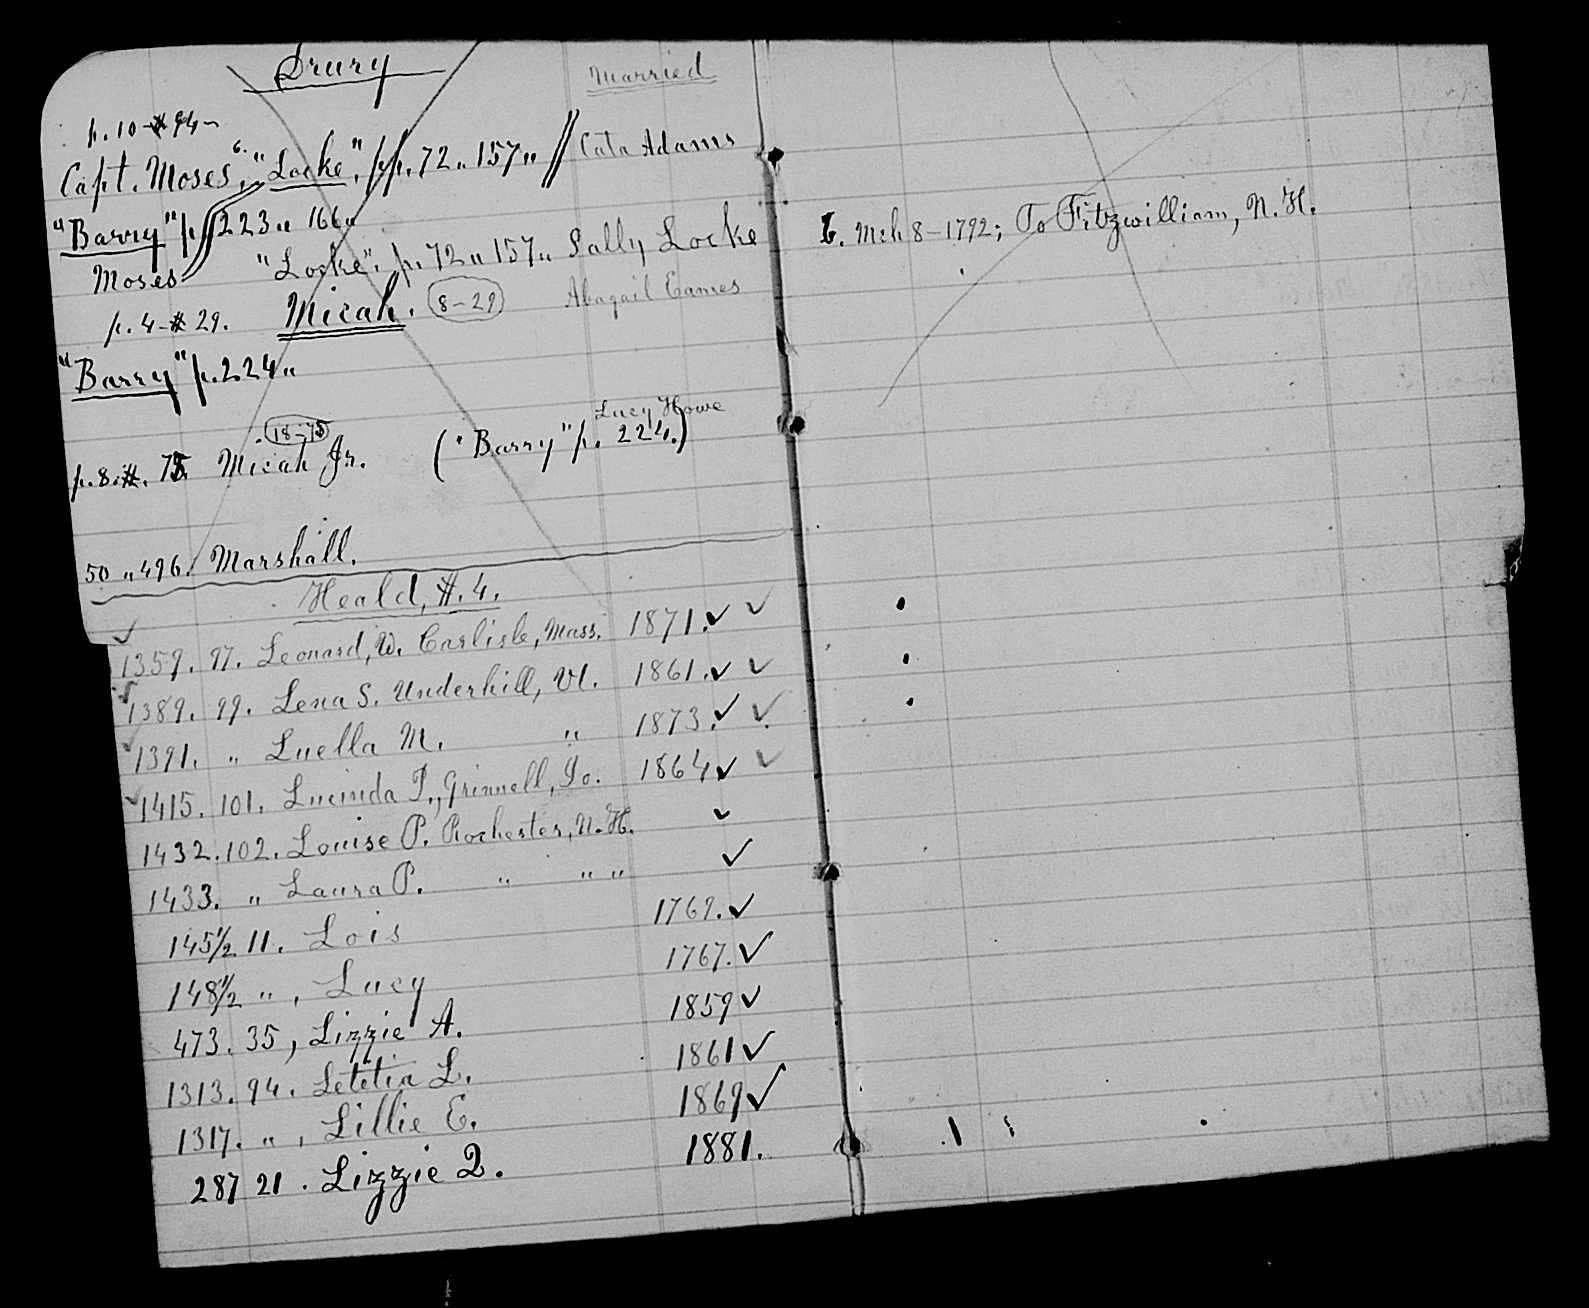 Drury Married
p. 10-#94-
Capt. Moses, 6. "Locke", pp. 72 „ 157 „ // Cata Adams
"Barry" p. 223 „ 166 „
Moses "Locke". p. 72 „ 157 „ Sally Locke b. Mch 8-1792; To Fitzwilliam, N.H.
p. 4-#29. Micah. 8-29 Abagail Eames
"Barry" p. 224 „
18-75 Lucy Howe
p. 8. #. 75. Micah Jr. ("Barry" p. 224.)
50 „ 496. Marshall.
Heald, #.4.
✓ 1359. 97. Leonard, W. Carlisle, Mass. 1871. ✓ ✓
✓ 1389. 99. Lena S. Underhill, Vt. 1861. ✓ ✓
✓ 1391. „ Luella M. „ 1873. ✓ ✓
✓ 1415. 101. Lucinda P., Grinnell, Io. 1864 ✓ ✓
1432. 102. Louise P. Rochester, N.H. ✓
1433. „ Laura P. „ „ „ ✓
145½ 11. Lois 1769. ✓
148½ „ , Lucy 1767. ✓
473. 35, Lizzie A. 1859 ✓
1313. 94. Letetia L. 1861 ✓
1317. „ , Lillie E. 1869 ✓
287 21. Lizzie Q. 1881.